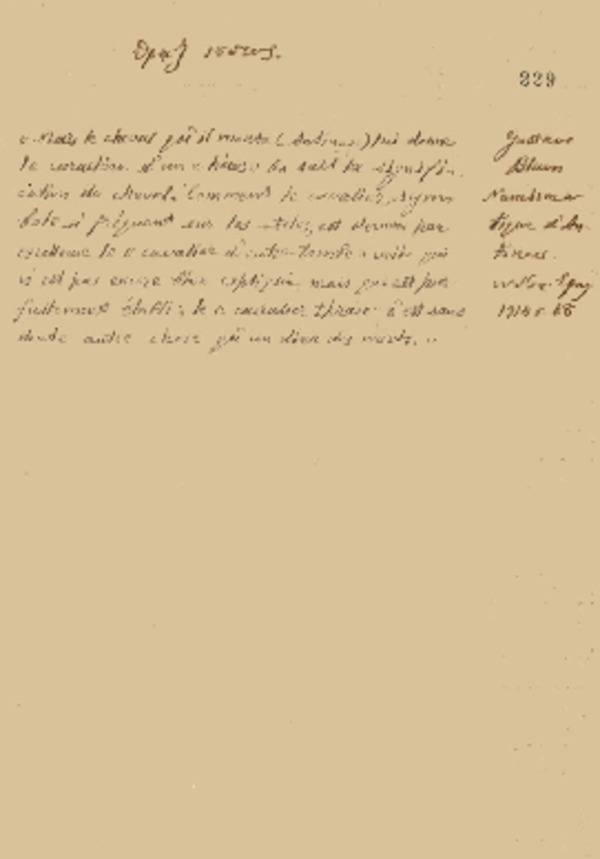 Θρᾷξ ἱππεύς.
229
« Mais le cheval qu'il monte (Antinous) lui donne
le caractère d'un « héros ». On sait la signifi-
cation du cheval. Comment le cavalier, symbole
si fréquent sur les stèles, est devenu par
excellence le « cavalier d'outre-tombe » voilà qui
n'est pas encore bien expliqué, mais qui est par-
faitement établi : le « cavalier thrace » c'est sans
doute autre chose qu'un dieu des morts. »
Gustave
Blum
Numisma-
tique d'An-
tinoos.
1914 p.